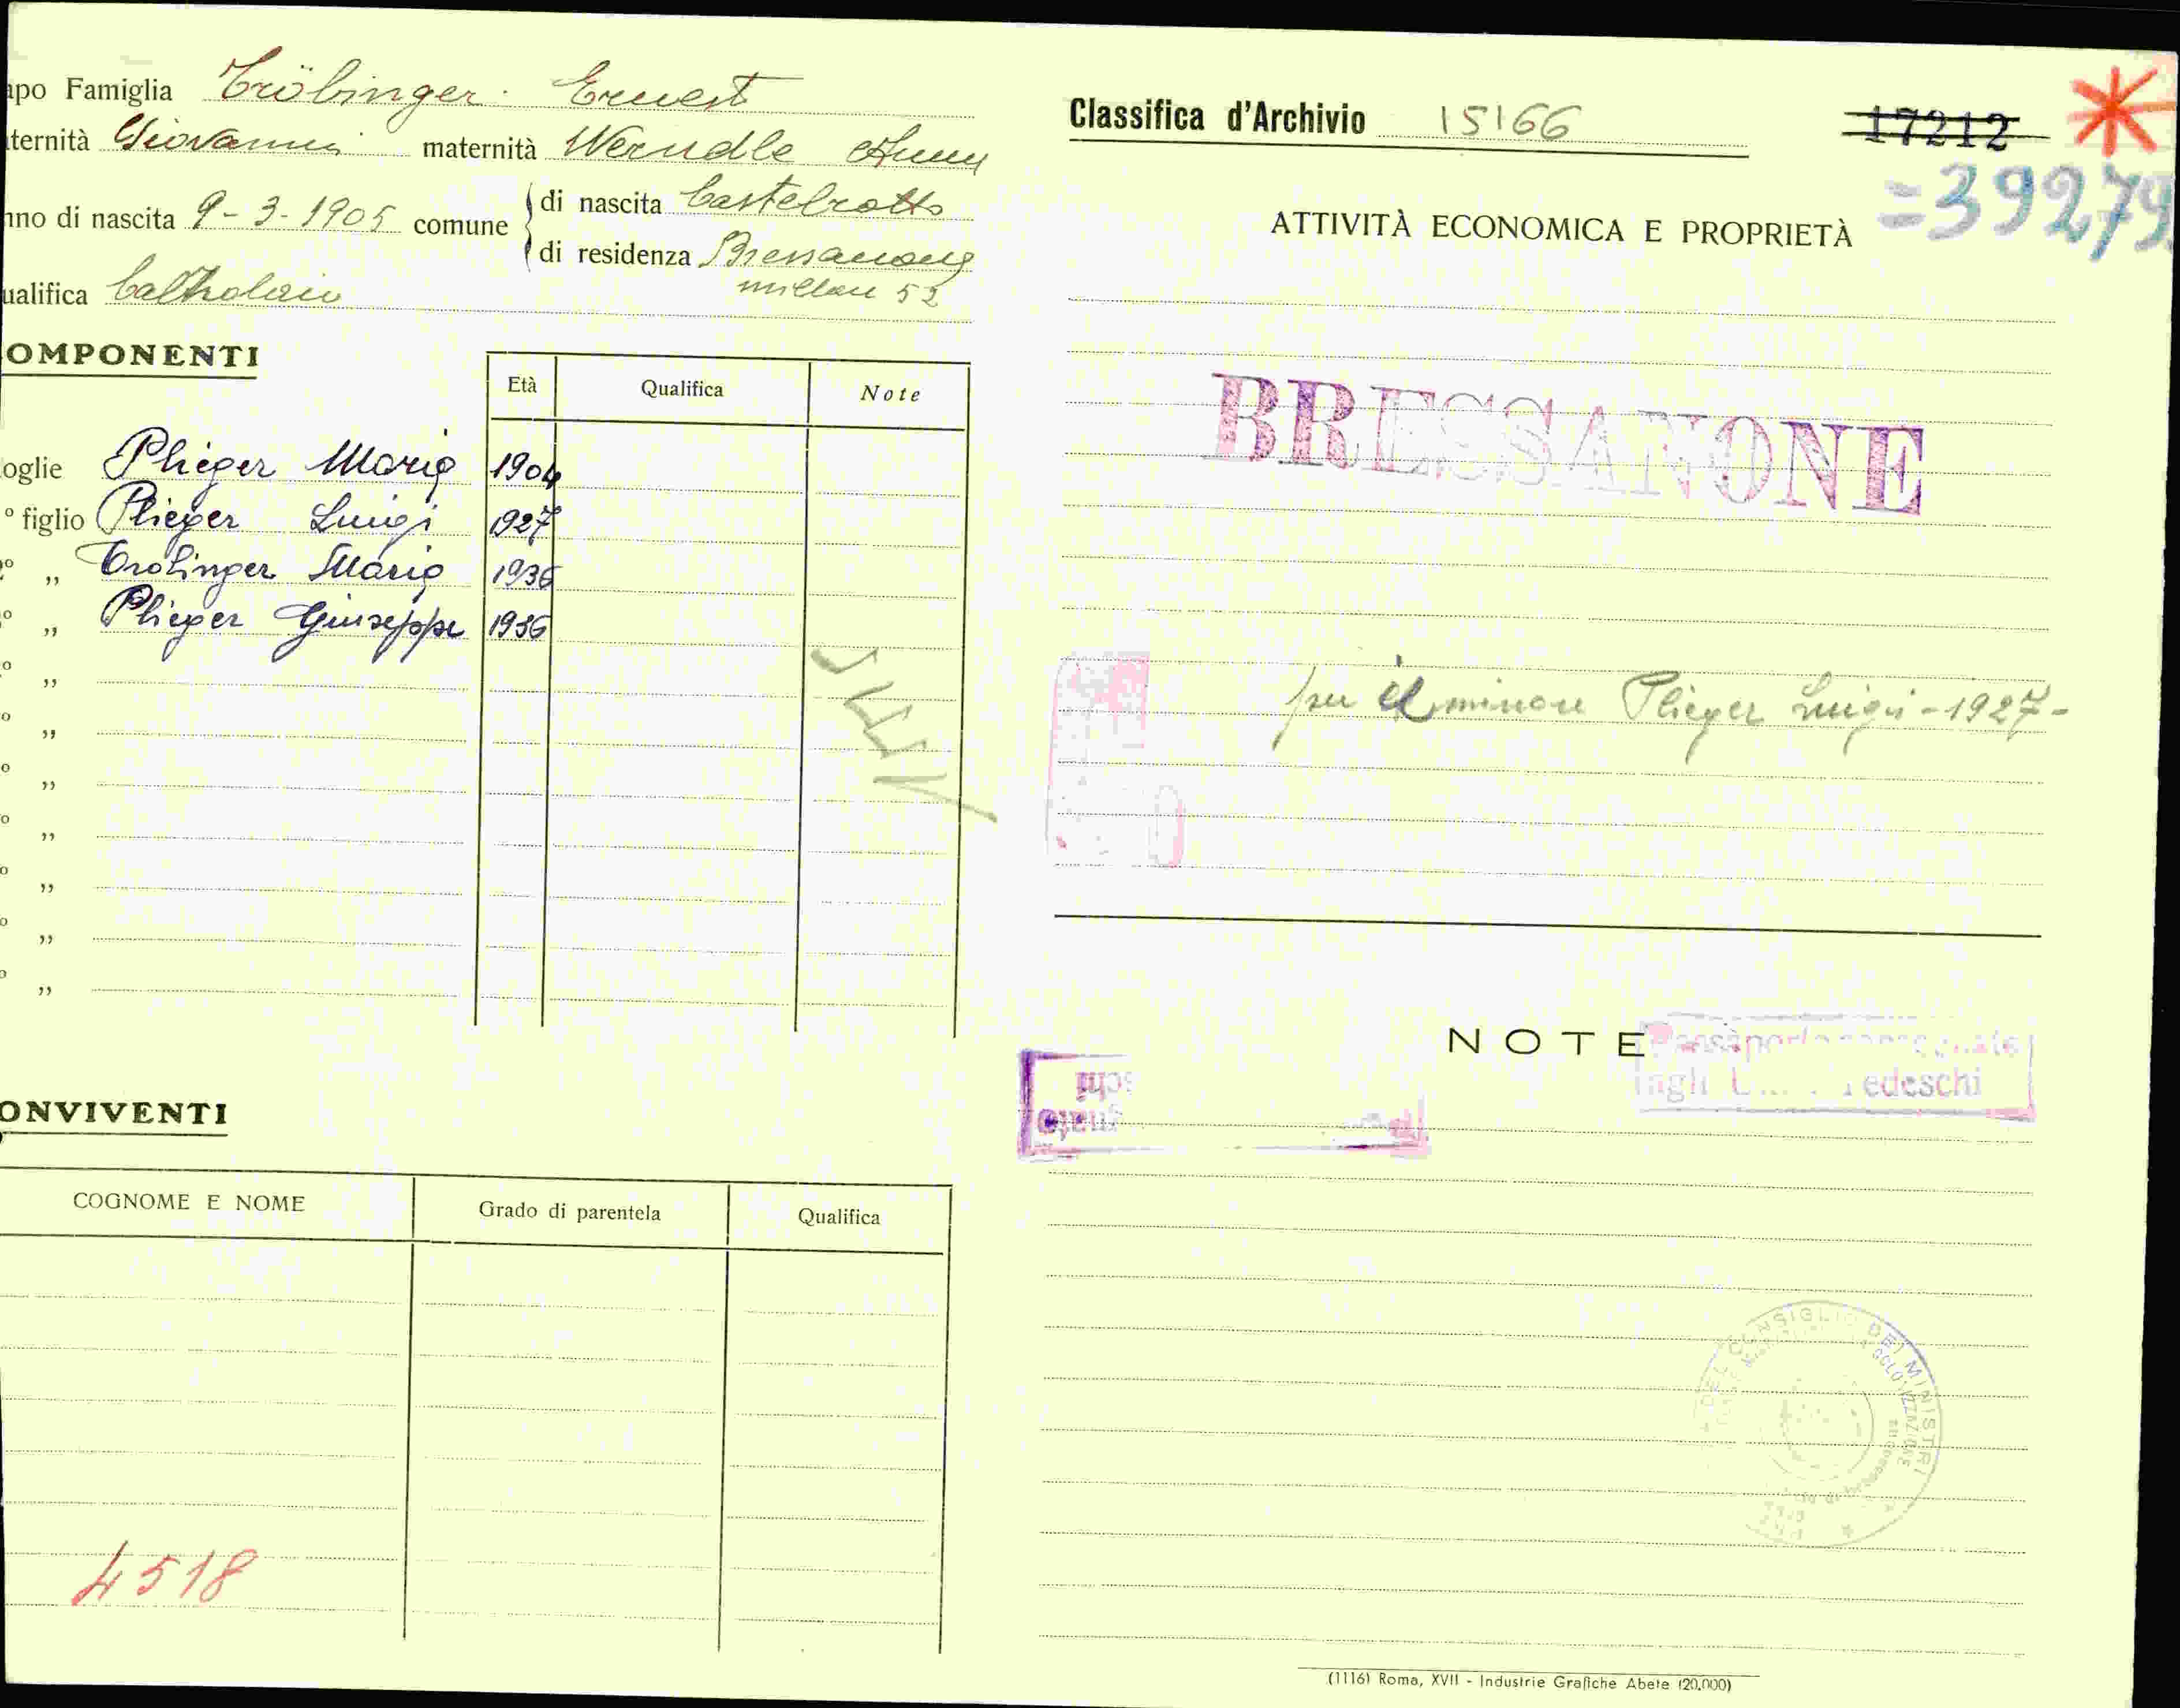 apo Famiglia Tröbinger Ernest
ternità Giovanni maternità Werndle Anna
nno di nascita 9-3-1905 comune di nascita Castelrotto
di residenza Bressanone
millan 52
ualifica Calzolaio
OMPONENTI
Età Qualifica Note
oglie Plieger Maria 1904
° figlio Plieger Luigi 1927
° „ Trobinger Maria 1936
° „ Plieger Giuseppe 1936
° „
° „
° „
° „
° „
° „
° „
ONVIVENTI
COGNOME E NOME Grado di parentela Qualifica
4518
Classifica d'Archivio 15166
17212
=39279
ATTIVITÀ ECONOMICA E PROPRIETÀ
BRESSANONE
per il minore Plieger Luigi-1927-
NOTE
edeschi
DEL CONSIGLIO DEI MINISTRI
(1116) Roma, XVII - Industrie Grafiche Abete (20.000)